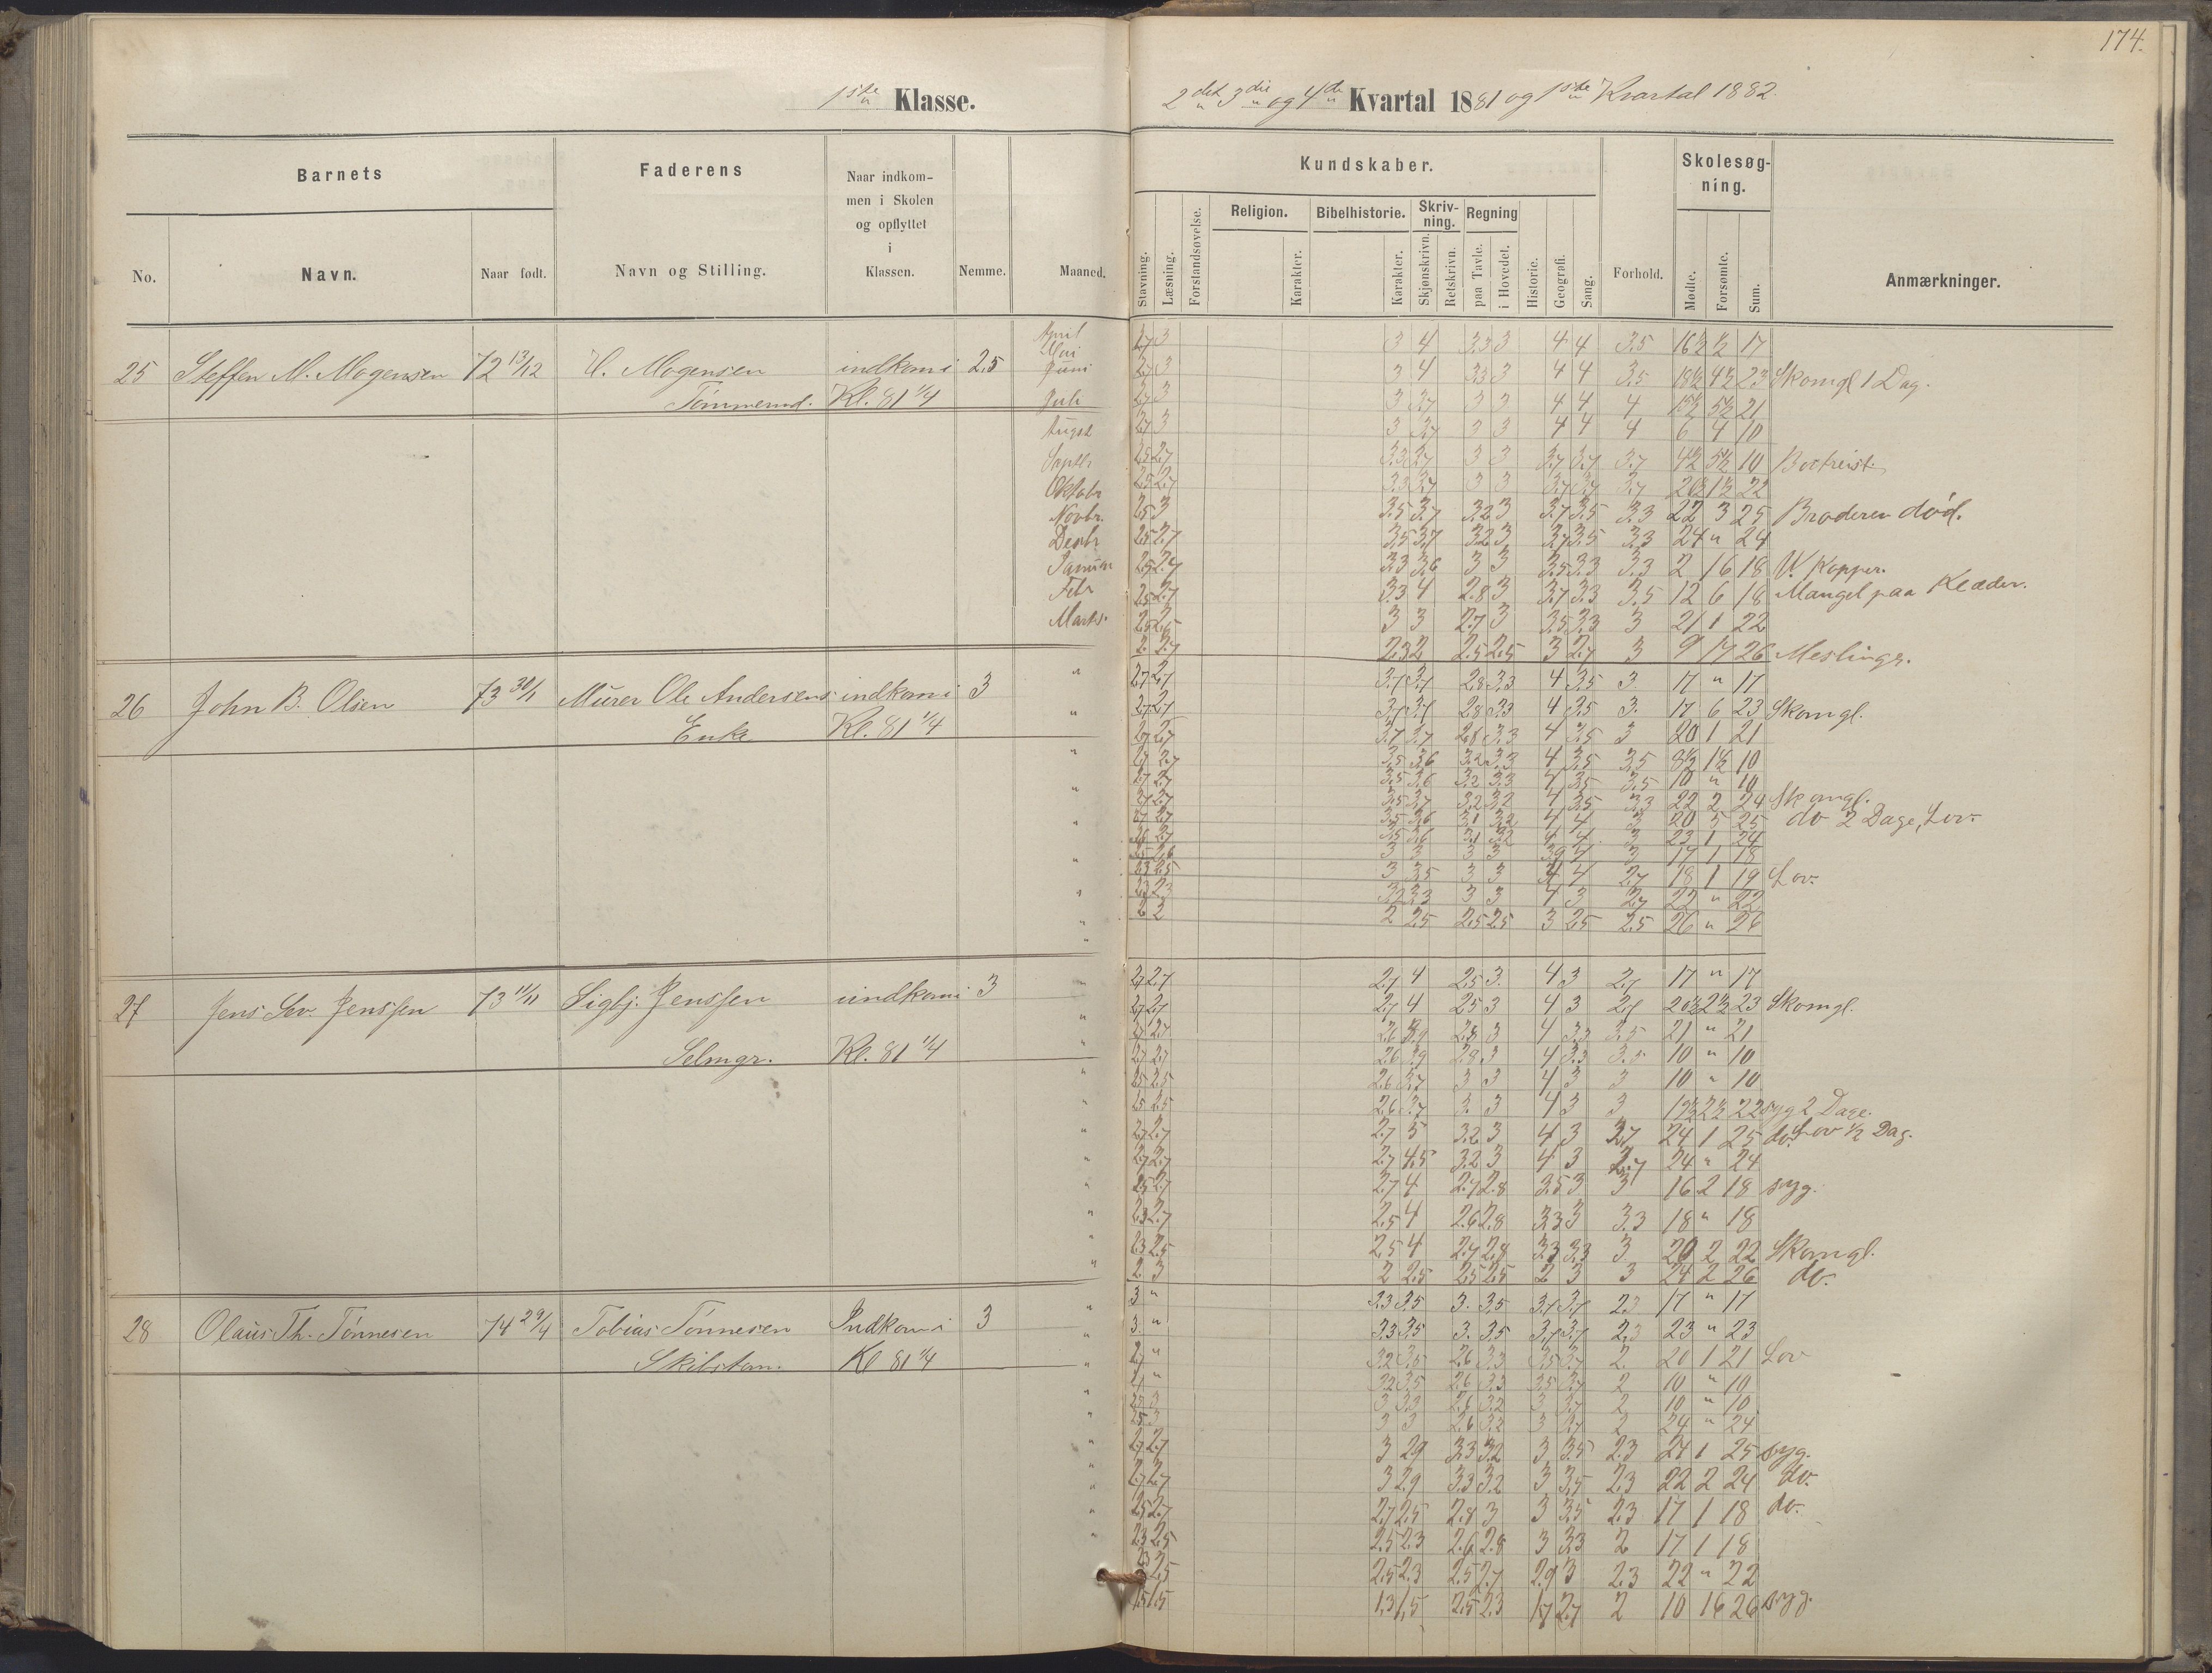 174.
1ste Klasse.
2det 3die og 4de Kvartal 1881 og 1ste Kvartal 1882.
Barnets
Faderens
Naar indkommen i Skolen og opflyttet i Klassen.
Nemme.
Maaned.
No.
Navn.
Naar født.
Navn og Stilling.
Kundskaber.
Stavning.
Læsning.
Forstandsøvelse.
Religion.
Karakter.
Bibelhistorie.
Karakter.
Skrivning.
Skjønskrivn.
Retskrivn.
Regning
paa Tavle.
i Hovedet.
Historie.
Geografi.
Sang.
Forhold.
Skolesøgning.
Mødte.
Forsømte.
Sum.
Anmærkninger.
April
Mai
25 Steffen M. Mogensen 72 13/12 H. Mogensen indkom i 2,5 Juni
Tømmermd. Kl. 81 1/4 Juli
Augst
Septbr
Oktobr
Novbr.
Decbr
Januar
Febr
Marts.
3 4 3,3 3 4 4 3,5 16½ ½ 17
3 4 3,3 3 4 4 3,5 18½ 4½ 23 Skomgl 1 Dag.
3 3,7 3 3 4 4 4 15½ 5½ 21
3 3,7 3 3 4 4 4 6 4 10
3,3 3,7 3 3 3,7 3,7 3,7 4½ 5½ 10 Bortreist.
3,3 3,7 3 3 3,7 3,7 3,7 20½ 1½ 22
3,5 3,7 3,2 3 3,7 3,5 3,3 22 3 25 Broderen død.
3,5 3,7 3,2 3 3,7 3,5 3,3 24 " 24
3,3 3,6 3 3 3,5 3,3 3,3 2 16 18 V. Kopper.
3,3 4 2,8 3 3,7 3,3 3,5 12 6 18 Mangel paa Klæder.
3 3 2,7 3 3,5 3,3 3 21 1 22
2,3 2 2,5 2,5 3 2,7 3 9 17 26 Meslinger.
26 John B. Olsen 73 30/1 Murer Ole Andersens indkom i 3
Enke Kl. 81 1/4
3,7 3,7 2,8 3,3 4 3,5 3. 17 " 17
3,7 3,7 2,8 3,3 4 3,5 3. 17 6 23 Skomgl.
3,7 3,7 2,8 3,3 4 3,5 3 20 1 21
3,5 3,6 3,2 3,3 4 3,5 3,5 8½ 1½ 10
3,5 3,6 3,2 3,3 4 3,5 3,5 10 " 10
3,5 3,7 3,2 3,2 4 3,5 3,3 22 2 24 Skomgl.
3,5 3,6 3,1 3,2 4 4 3 20 5 25 do 2 Dage, Lov.
3,5 3,6 3,1 3,2 4 4 3 23 1 24
3 3 3 3 3,9 4 3 17 1 18
3 3,5 3 3 4 4 2,7 18 1 19 Lov.
3,2 3,3 3 3 4 3 2,7 22 " 22
2 2,5 2,5 2,5 3 2,5 2,5 26 " 26
27 Jens Sev. Jenssen 73 11/11 Sigbj. Jenssen indkom i 3
Selmgr. Kl. 81 1/4
2,7 4 2,5 3. 4 3 2,7 17 " 17
2,7 4 2,5 3 4 3 2,7 20½ 2½ 23 Skomgl.
2,6 3,9 2,8 3 4 3,3 3,5 21 " 21
2,6 3,9 2,8 3 4 3,3 3,5 10 " 10
2,6 3,7 3 3 4 3 3 10 " 10
2,6 3,7 3. 3 4 3 3 19½ 2½ 22 syg 2 Dage.
2,7 5 3,2 3 4 3 2,7 24 1 25 do. Lov ½ Dag.
2,7 4,5 3,2 3 4 3 2,7 24 " 24
2,7 4 2,7 2,8 3,5 3 3 16 2 18 syg.
2,5 4 2,6 2,8 3,3 3 3,3 18 " 18
2,5 4 2,7 2,8 3,3 3,3 3 20 2 22 Skomgl.
2 2,5 2,5 2,5 2 3 3 24 2 26 do.
28 Olaus Th. Tønnesen 74 29/4 Tobias Tønnesen Indkom i 3
Skibstøm. Kl 81 1/4
3 " 3,3 3,5 3. 3,5 3,7 3,7 2,3 17 " 17
3. " 3,3 3,5 3. 3,5 3,7 3,7 2,3 23 " 23
3,2 3,5 2,6 3,3 3,5 3,7 2. 20 1 21 Lov
3,2 3,5 2,6 3,3 3,5 3,7 2 10 " 10
3 3,3 2,6 3,2 3 3,7 2 10 " 10
3 3 2,6 3,2 3 3,7 2 24 " 24
3 2,9 3,3 3,2 3 3,5 2,3 24 1 25 syg.
3 2,9 3,3 3,2 3 3,5 2,3 22 2 24 do.
2,7 2,5 2,8 3 3 3,5 2,3 17 1 18 do.
2,5 2,3 2,6 2,8 3 3,3 2 17 1 18
2,5 2,3 2,5 2,7 2,9 3 2,3 22 " 22
1,3 1,5 2,5 2,3 1,7 2,7 2 10 16 26 syg.